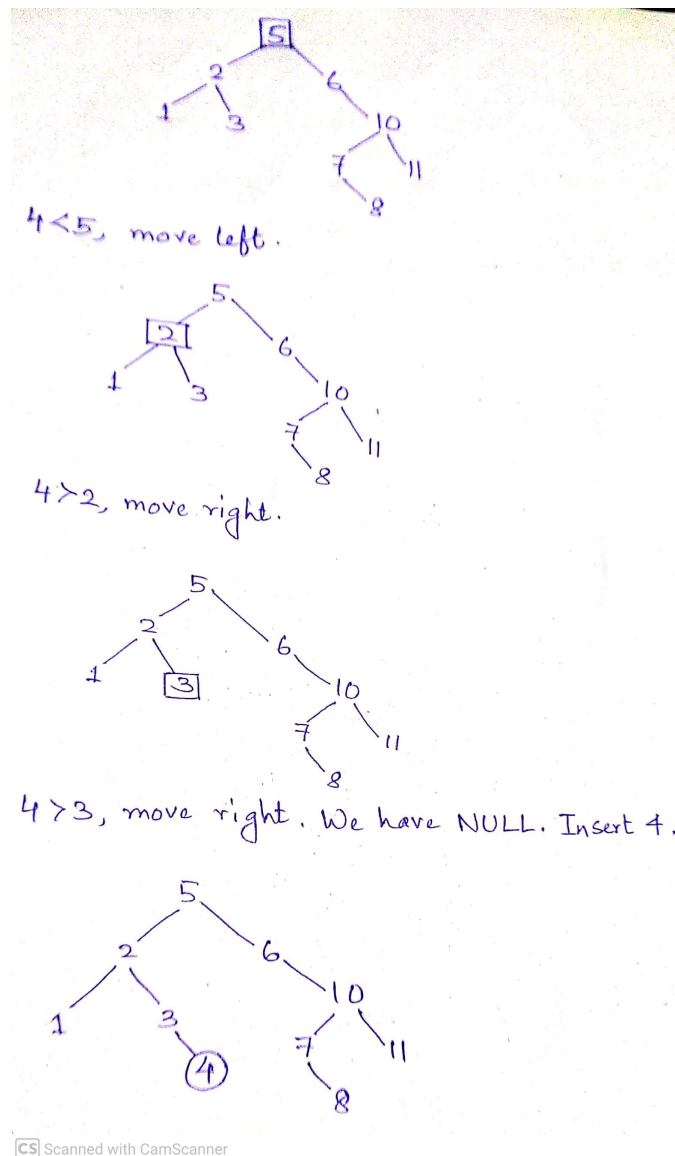 5
2 6
1 3 10
7 11
8
4<5, move left.
5
2 6
1 3 10
7 11
8
4>2, move right.
5
2 6
1 3 10
7 11
8
4>3, move right. We have NULL. Insert 4.
5
2 6
1 3 10
4 7 11
8
CS Scanned with CamScanner